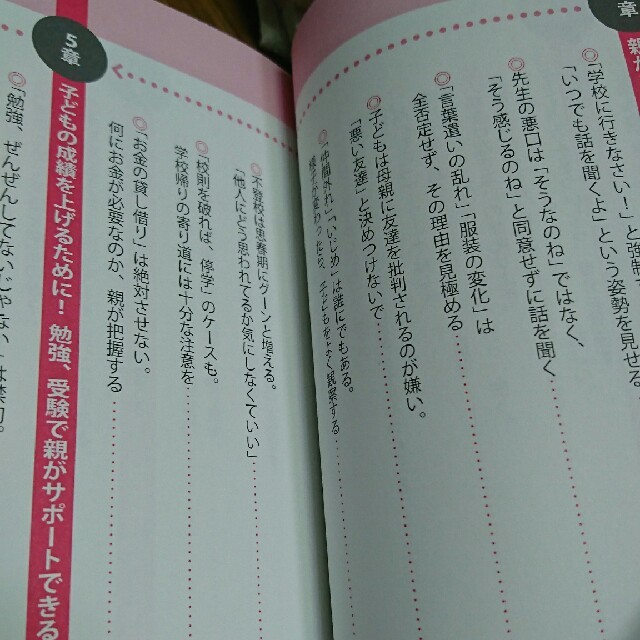 章
「学校に行きなさい！」と強制
「いつでも話を聞くよ」という姿勢を見せる
◎先生の悪口は「そうなのね」ではなく、
「そう感じるのね」と同意せずに話を聞く
◎「言葉遣いの乱れ」「服装の変化」は
全否定せず、その理由を見極める
◎子どもは母親に友達を批判されるのが嫌い。
「悪い友達」と決めつけないで
◎「仲間外れ」「いじめ」は誰にでもある。
様子が変わったら、子どもをよく観察する
◎不登校は思春期にグーンと増える。
「他人にどう思われてるか気にしなくていい」
◎「校則を破れば、停学」のケースも。
学校帰りの寄り道には十分な注意を
◎「お金の貸し借り」は絶対させない。
何にお金が必要なのか、親が把握する
5章
子どもの成績を上げるために！ 勉強、受験で親がサポートできる
◎「勉強、ぜんぜんしてないじゃない」は禁句。